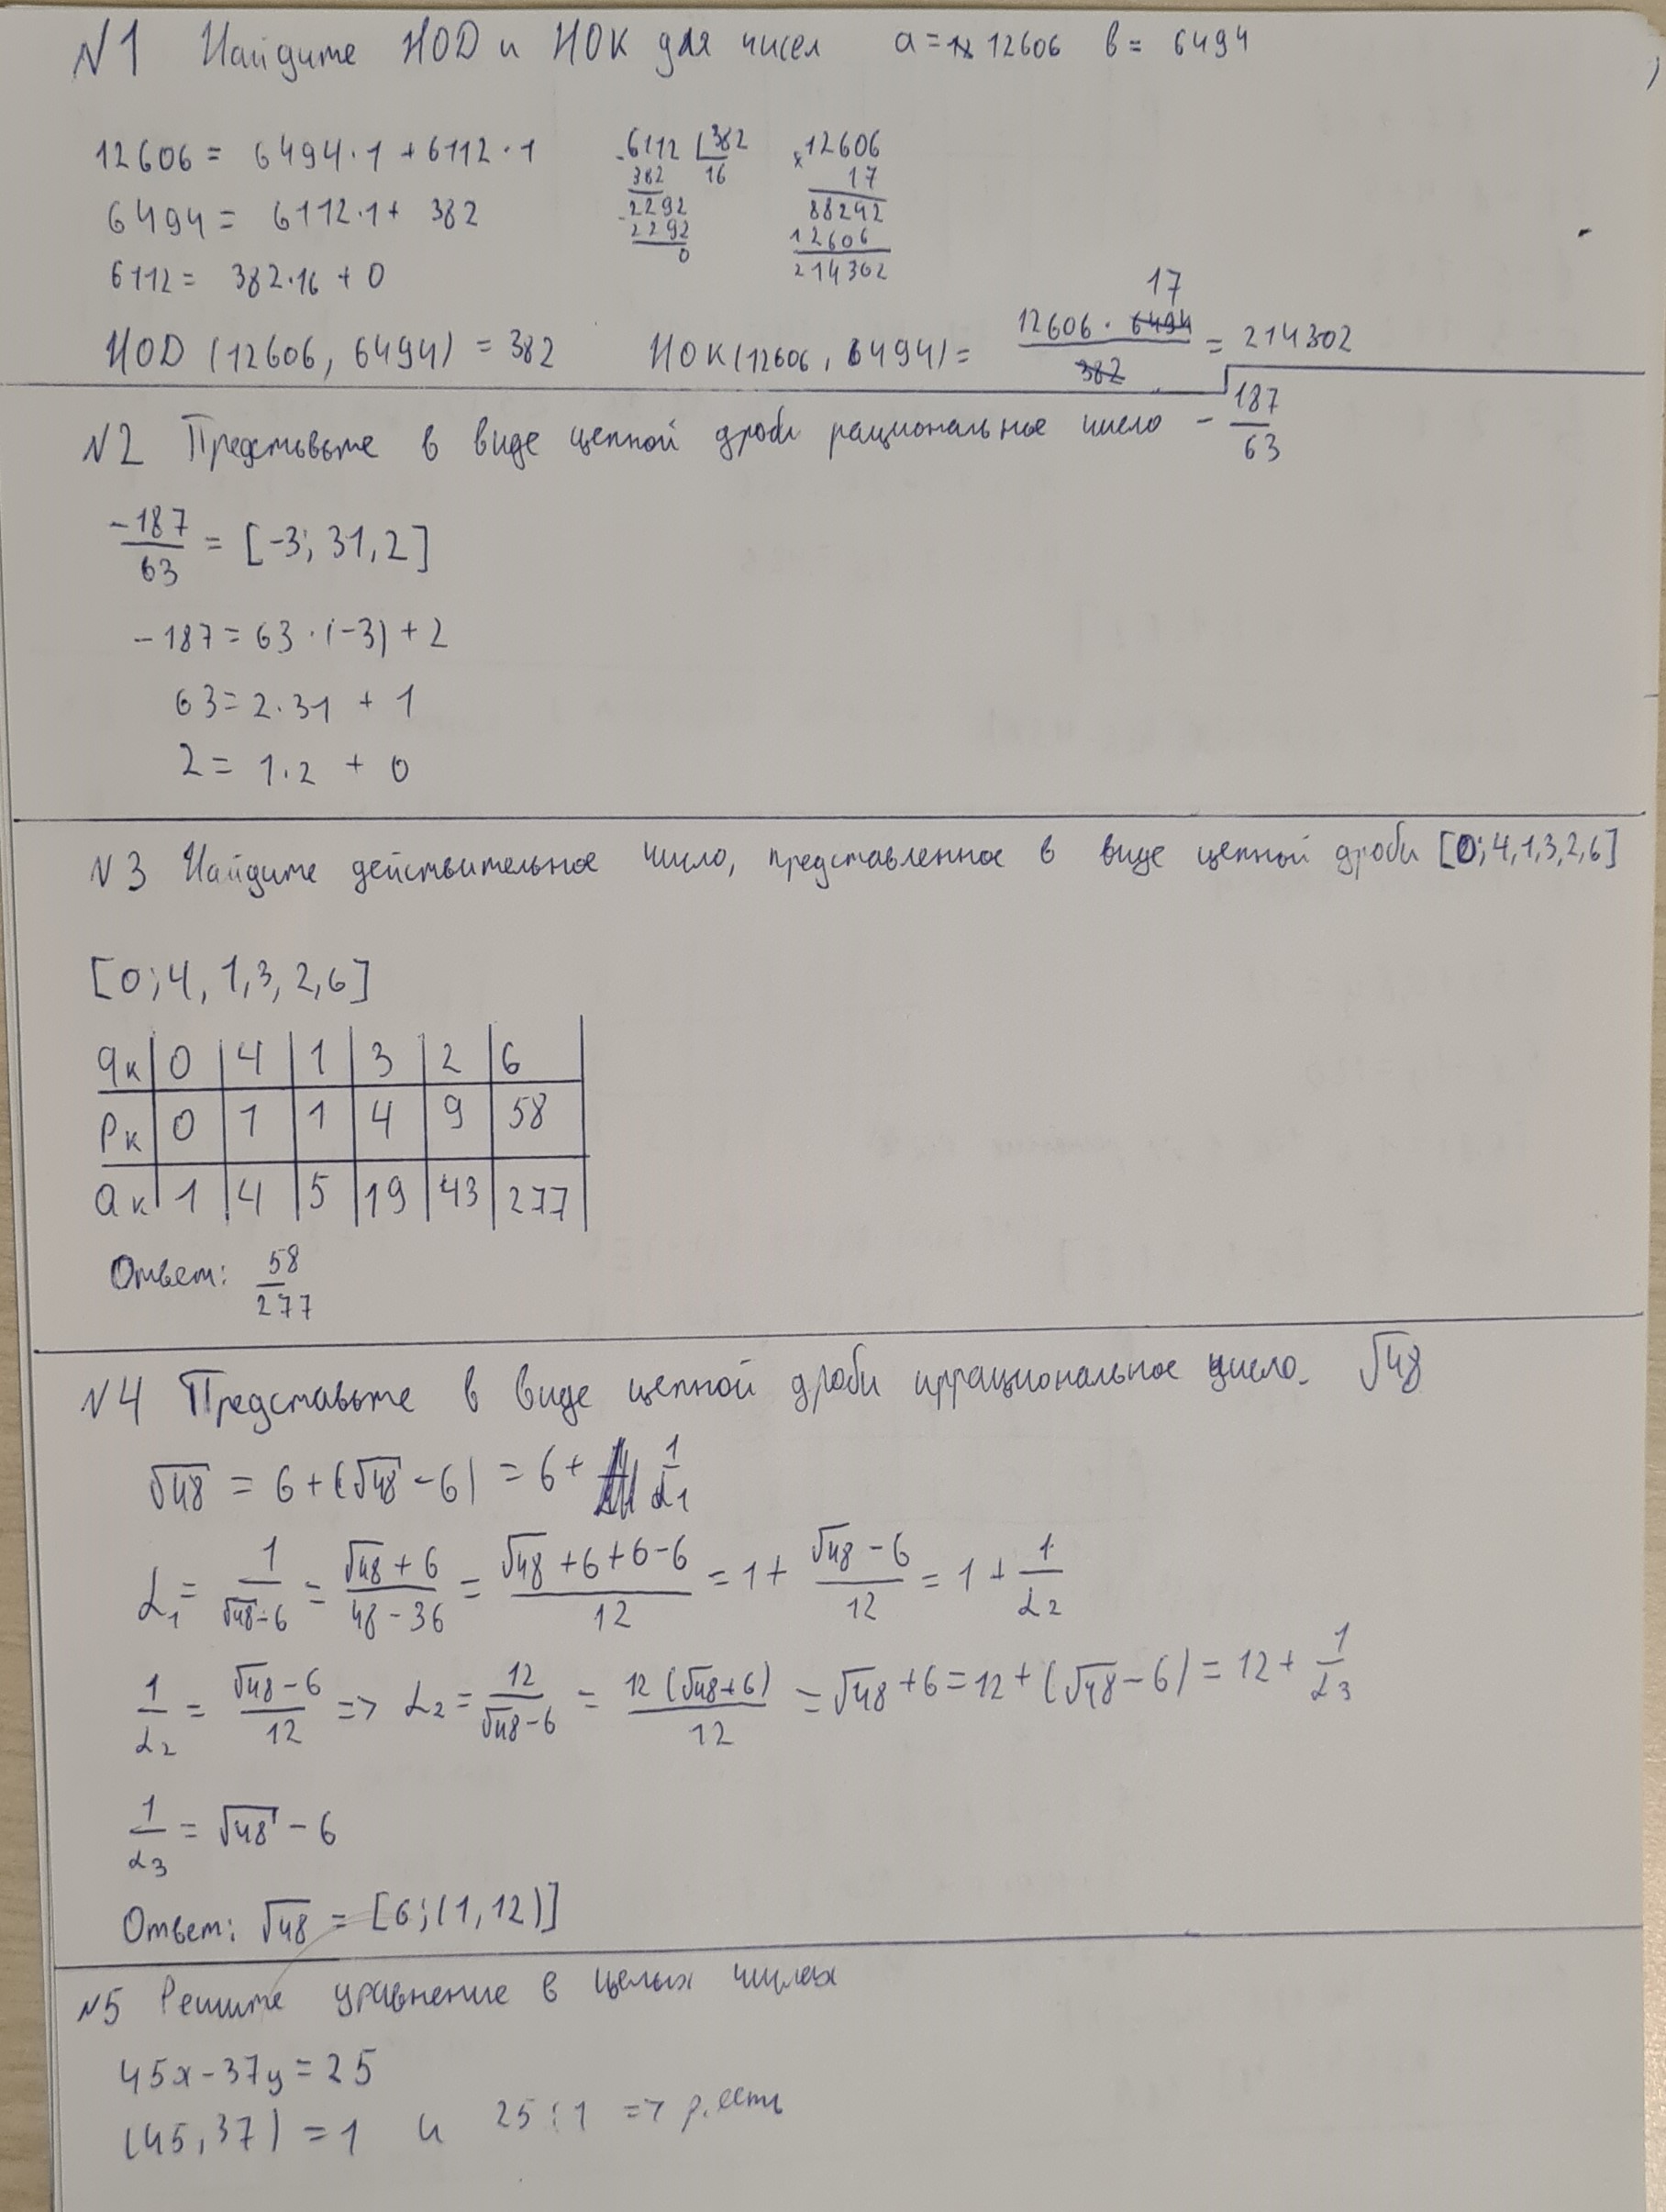 N1 Найдите НОD и НОК для чисел a = 12606 b = 6494
12606 = 6494·1 + 6112·1
6494 = 6112·1 + 382
6112 = 382·16 + 0
-6112 | 382
382 16
-2292
2292
0
×12606
17
88242
12606
214302
17
НОD (12606, 6494) = 382 НОК(12606, 6494) = 12606 · 6494 / 382 = 214302
N2 Предствьте в виде цепной дроби рациональное число - 187/63
-187/63 = [-3; 31, 2]
-187 = 63·(-3) + 2
63 = 2·31 + 1
2 = 1·2 + 0
N3 Найдите действительное число, представленное в виде цепной дроби [0; 4, 1, 3, 2, 6]
[0; 4, 1, 3, 2, 6]
qк | 0 | 4 | 1 | 3 | 2 | 6
Pк | 0 | 1 | 1 | 4 | 9 | 58
Qк | 1 | 4 | 5 | 19 | 43 | 277
Ответ: 58/277
N4 Представьте в виде цепной дроби иррациональное число √48
√48 = 6 + (√48 - 6) = 6 + 1/α₁
α₁ = 1/(√48 - 6) = (√48 + 6)/(48 - 36) = (√48 + 6 + 6 - 6)/12 = 1 + (√48 - 6)/12 = 1 + 1/α₂
1/α₂ = (√48 - 6)/12 => α₂ = 12/(√48 - 6) = 12(√48 + 6)/12 = √48 + 6 = 12 + (√48 - 6) = 12 + 1/α₃
1/α₃ = √48 - 6
Ответ: √48 = [6; (1, 12)]
N5 Решите уравнение в целых числах
45x - 37y = 25
(45, 37) = 1 и 25 ⋮ 1 => р. есть